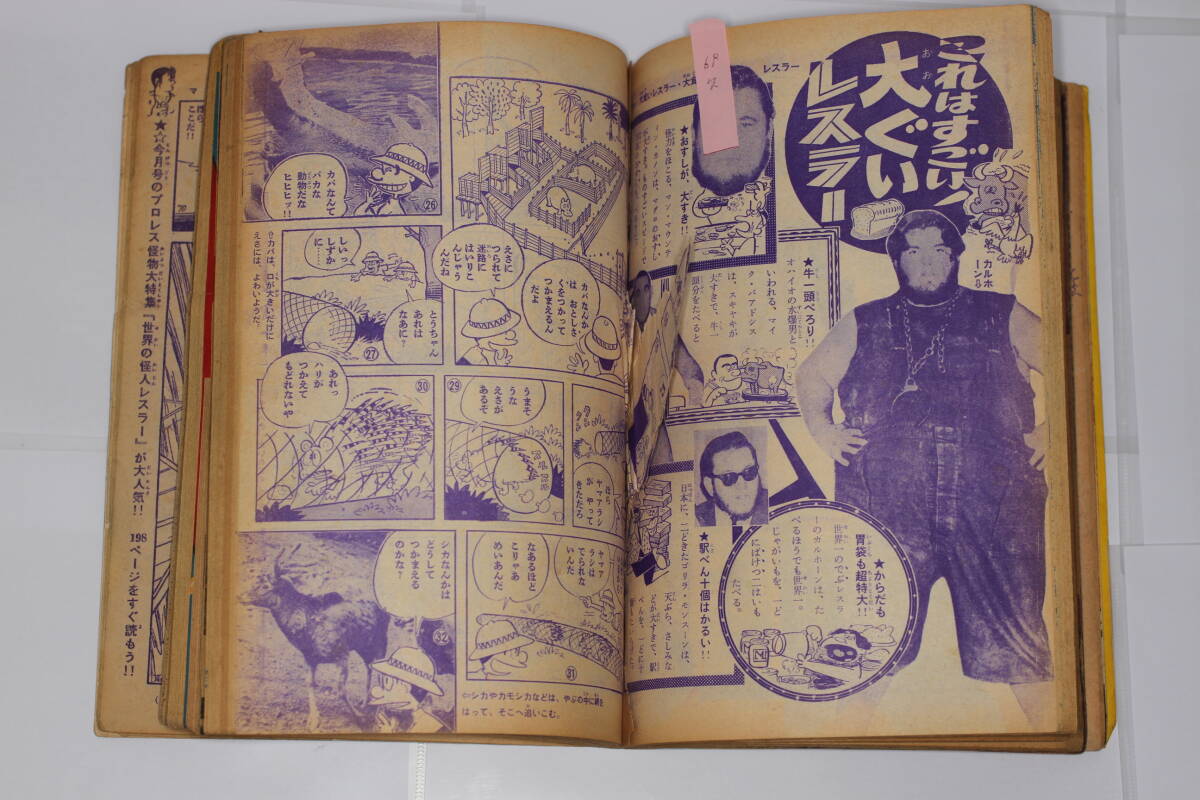 これはすごい!
大ぐい
レスラー
レスラー
カルホーン
★おすしが、大すき!!
★牛一頭ぺろり!!
オハイオの水爆男と
いわれる、マイ
ク・パアドシス
は、スキヤキが
大すきで、牛一
頭分をたべると
★駅べん十個はかるい!!
日本に、二どきたゴリラ・モンスーンは、
天ぷら、さしみな
どが大すきで、駅
べんを、一どに十
★からだも
胃袋も超特大!!
世界一のでぶレスラ
ーのカルホーンは、た
べるほうでも世界一。
じゃがいもを、一ど
にばけつ二はいも
たべる。
カバなんて
バカな
動物だな
ヒヒヒッ!!
26
⇧カバは、口が大きいだけに
えさには、よわいようだ。
カバなんか
は おとしあ
くをつかって
つかまえるん
だよ
えさに
つられて
迷路に
はいりこ
んじゃう
んだね
しいっ
しずか
に……
とうちゃん
あれは
なあに?
27
ほら
ヤマアラシ
が やって
きただろ
うまそ
うな
えさが
あるぞ
29
あれっ
ハリが
つかえて
もどれないや
30
ヤマア
ラシは
でられな
いんだ
なあるほど
こりゃあ
めいあんだ
31
⇦シカやカモシカなどは、やぶの中に網を
はって、そこへ追いこむ。
シカなんかは
どうして
つかまえる
のかな?
32
ここだ!!
★☆今月号のプロレス怪物大特集「世界の怪人レスラー」が大人気!! 198ページをすぐ読もう!!